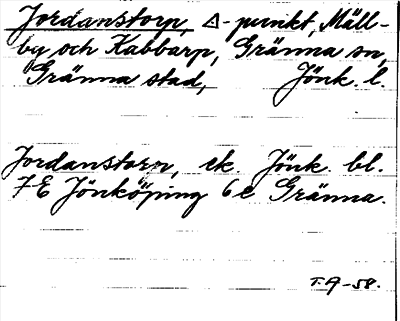 Jordanstorp, △-punkt, Mäll-
by och Kabbarp, Gränna sn,
Gränna stad, Jönk. l.
Jordanstorp, ek. Jönk. bl.
7E Jönköping 6e Gränna.
T.A-58.